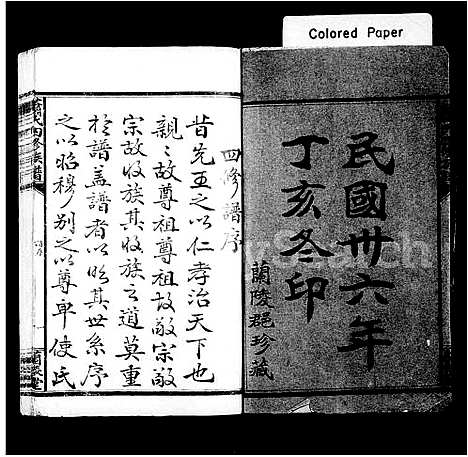 Colored Paper
民國卅六年
丁亥冬印
蘭陵郡珍藏
四修譜序
昔先王之以仁孝治天下也
親親故尊祖尊祖故敬宗敬
宗故收族其收族之道莫重
於譜蓋譜者以明其世系序
之以昭穆別之以尊卑使氏
蕭氏四修族譜